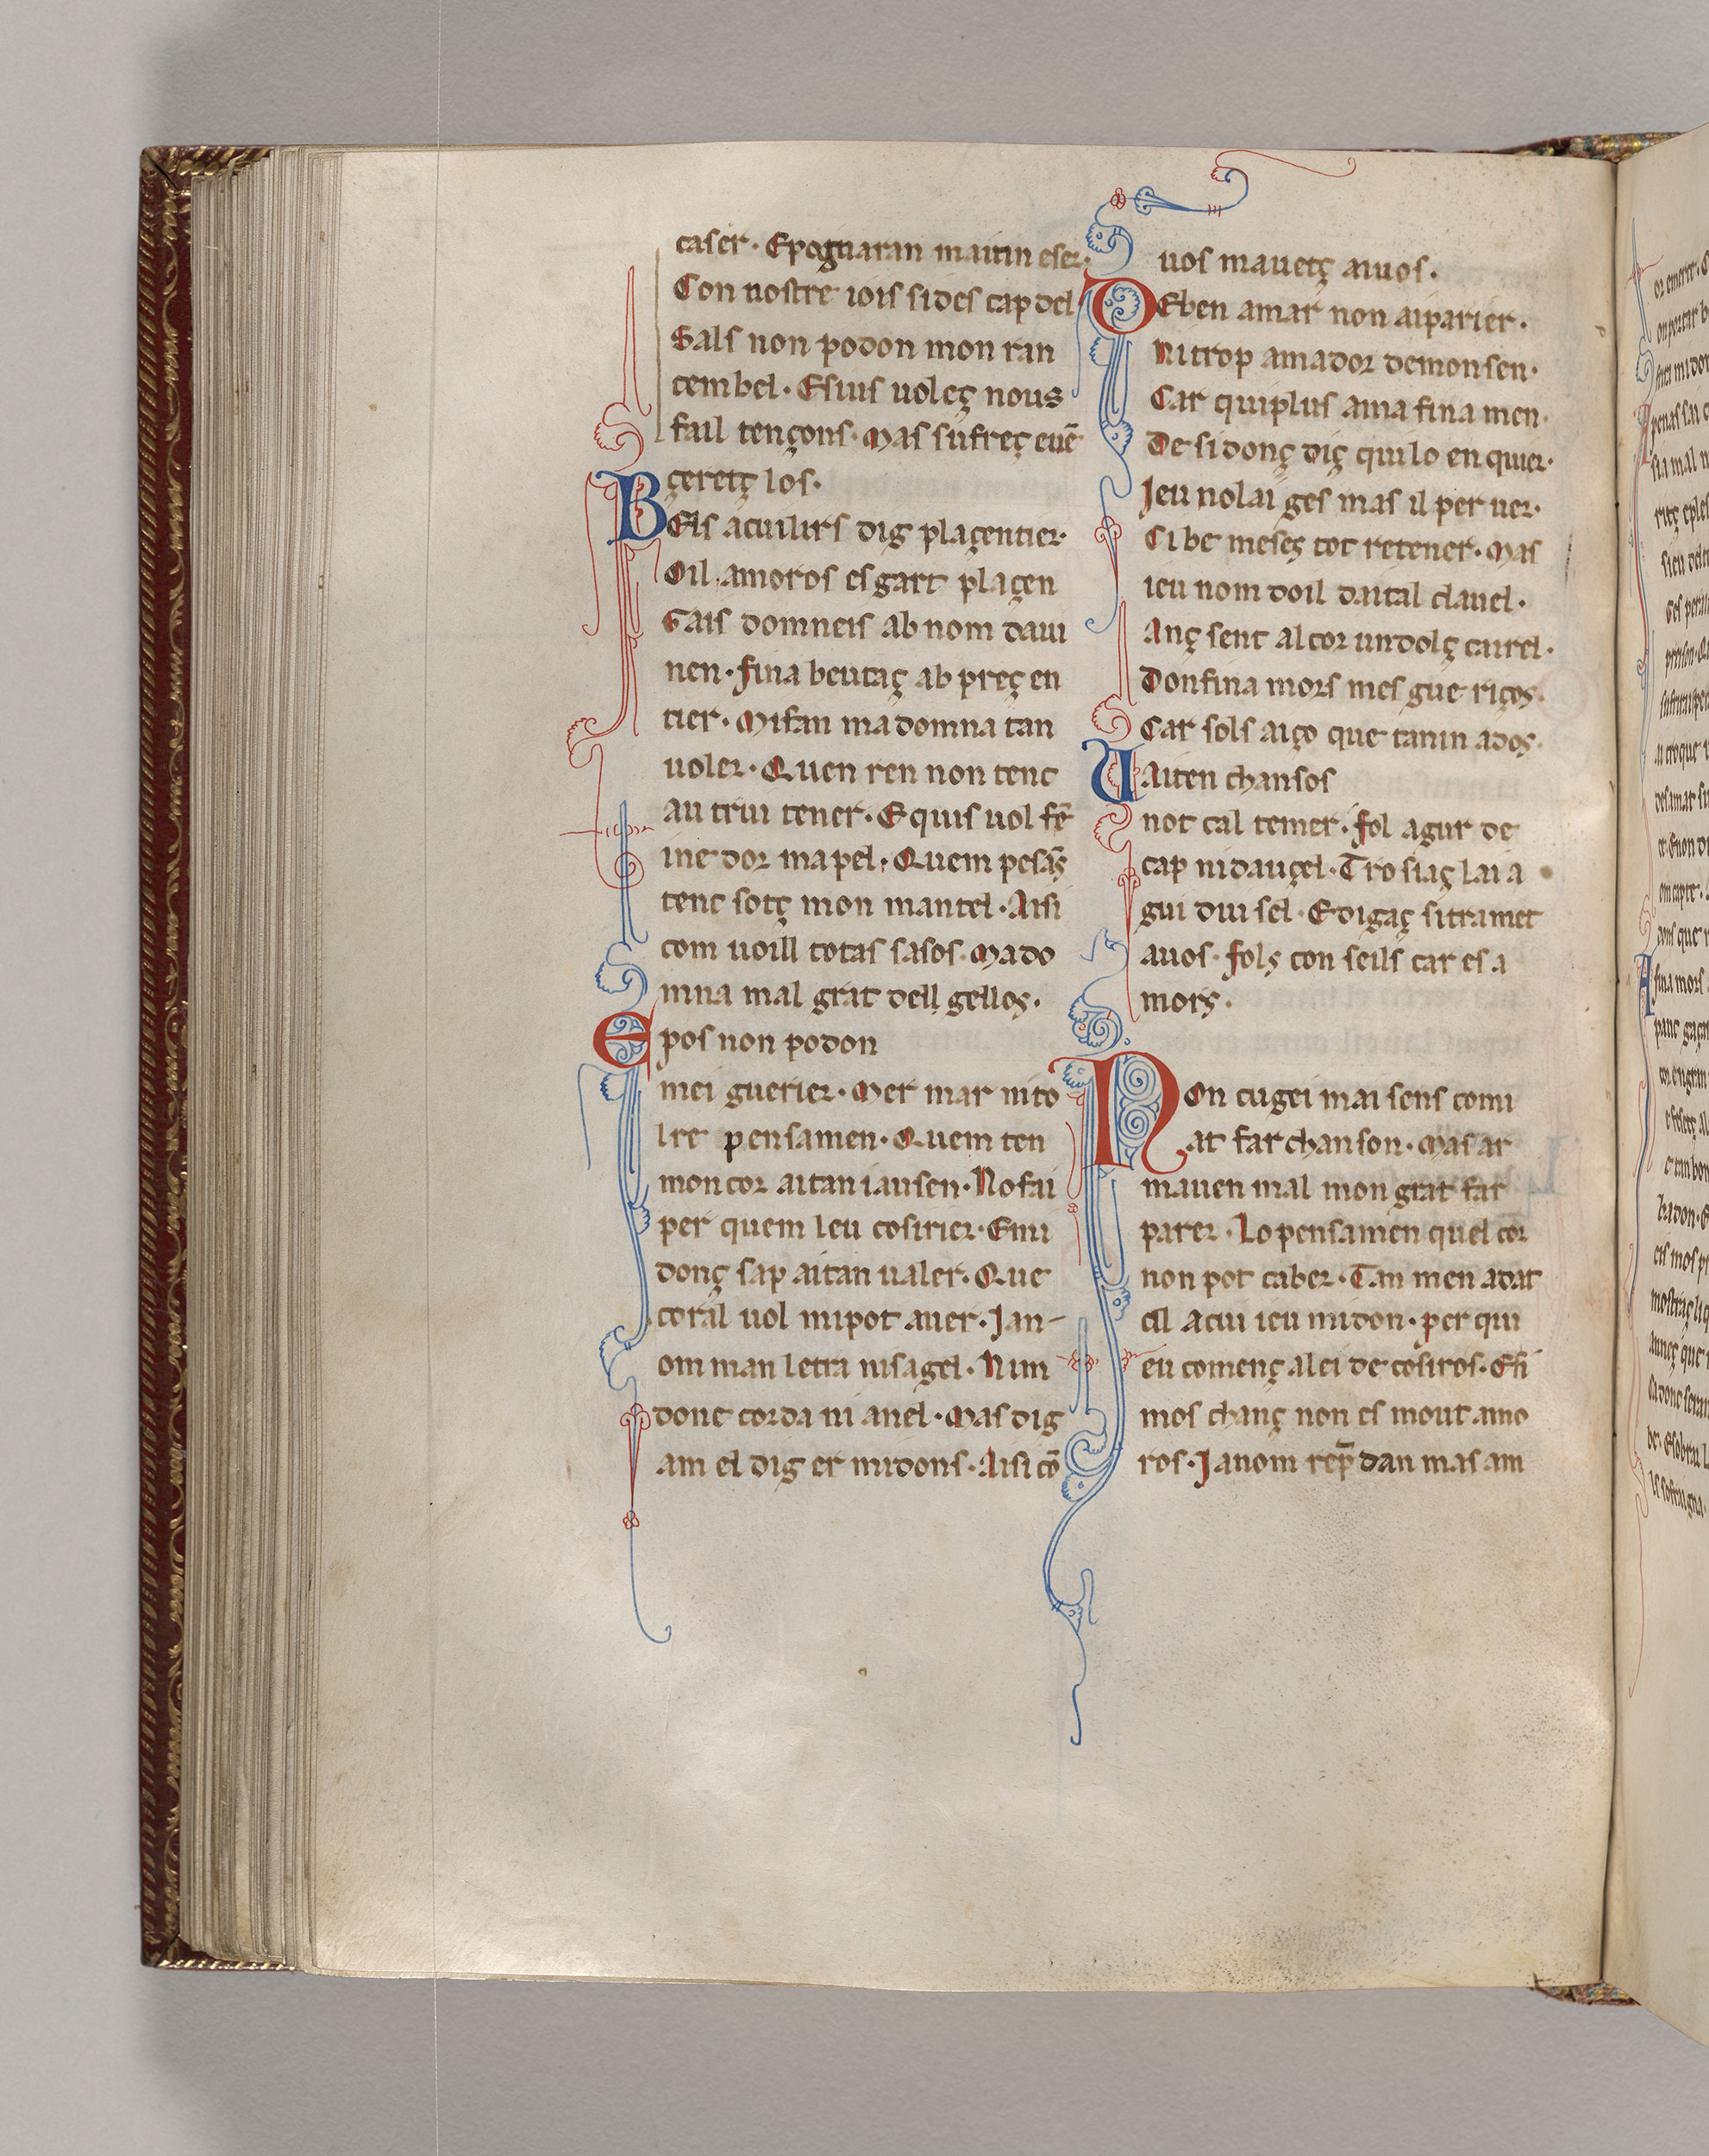 caser· Epognaran maitin eser·
Con nostre iois sides cap del
Gals non podon mon ran
cembel· Esius uoleç nous
fail tençons· Mas sufreç euē
çeretç los·
BEls acuilirs dig plaçentier·
Oil amoros esgart plaçen
Gais domneis ab nom daui
nen· fina beutaç ab preç en
tier· Mifan ma domna tan
uoler· Quen ren non tenc
au trui tener· E quis uol fē
ine dor ma pel· Quem pesās
tenc sotç mon mantel· Aisi
com uoill totas sasos· Mado
mna mal grat dell gellos·
E pos non podon
mei guerier· Mer mar nito
lre pensamen· Quem ten
mon cor aitan iausen· No fai
per quem leu cosirier· Emi
donç sap aitan ualer· Que
coral uol mi pot auer· Jan-
om man letra nisagel· Nim
donc corda ni anel· Mas dig
am el dig er midons· Aisi cō
uos mauetç aiuos·
DEben amar non ai parier·
Ni trop amador de mon sen·
Car qui plus ama fina men·
De si donç diç qui lo en quier·
Jeu nolai ges mas il per uer·
Si be meses tot retener· Mas
ieu nom doil daital clauel·
Anç sent al cor un dolç cairel·
Don fina mors mes gue riços·
Car sols aiço que tanin ados·
UAiten chansos
not cal temer· fol agur de
cap nidauçel· Tro siaç lai a
gui dui sel· E digaç si tramet
auos· folç con seils car es a
mors·
NOn cugei mai sens comi
at far chanson· Mas ar
mauen mal mon grat far
parer· Lo pensamen quel cor
non pot caber· Tan men adat
cil acui ieu midon· per qui
eu començ a lei de cosiros· E si
mos chanç non es mout amo
ros· Ja nom rep̄dan mas am